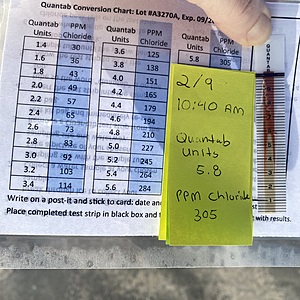 Quantab Conversion Chart: Lot #A3270A, Exp. 09/2
Quantab Units PPM Chloride
1.4 30
1.6 36
1.8 43
2.0 49
2.2 57
2.4 65
2.6 73
2.8 83
3.0 92
3.2 103
3.4 114
3.6 125
3.8 138
4.0 151
4.2 165
4.4 179
4.6 194
4.8 210
5.0 227
5.2 245
5.4 264
5.6 284
Quantab Units PPM Chloride
5.8 305
2/9
10:40 AM
Quantab
Units
5.8
PPM Chloride
305
Write on a post-it and stick to card: date and
Place completed test strip in black box and
with results.